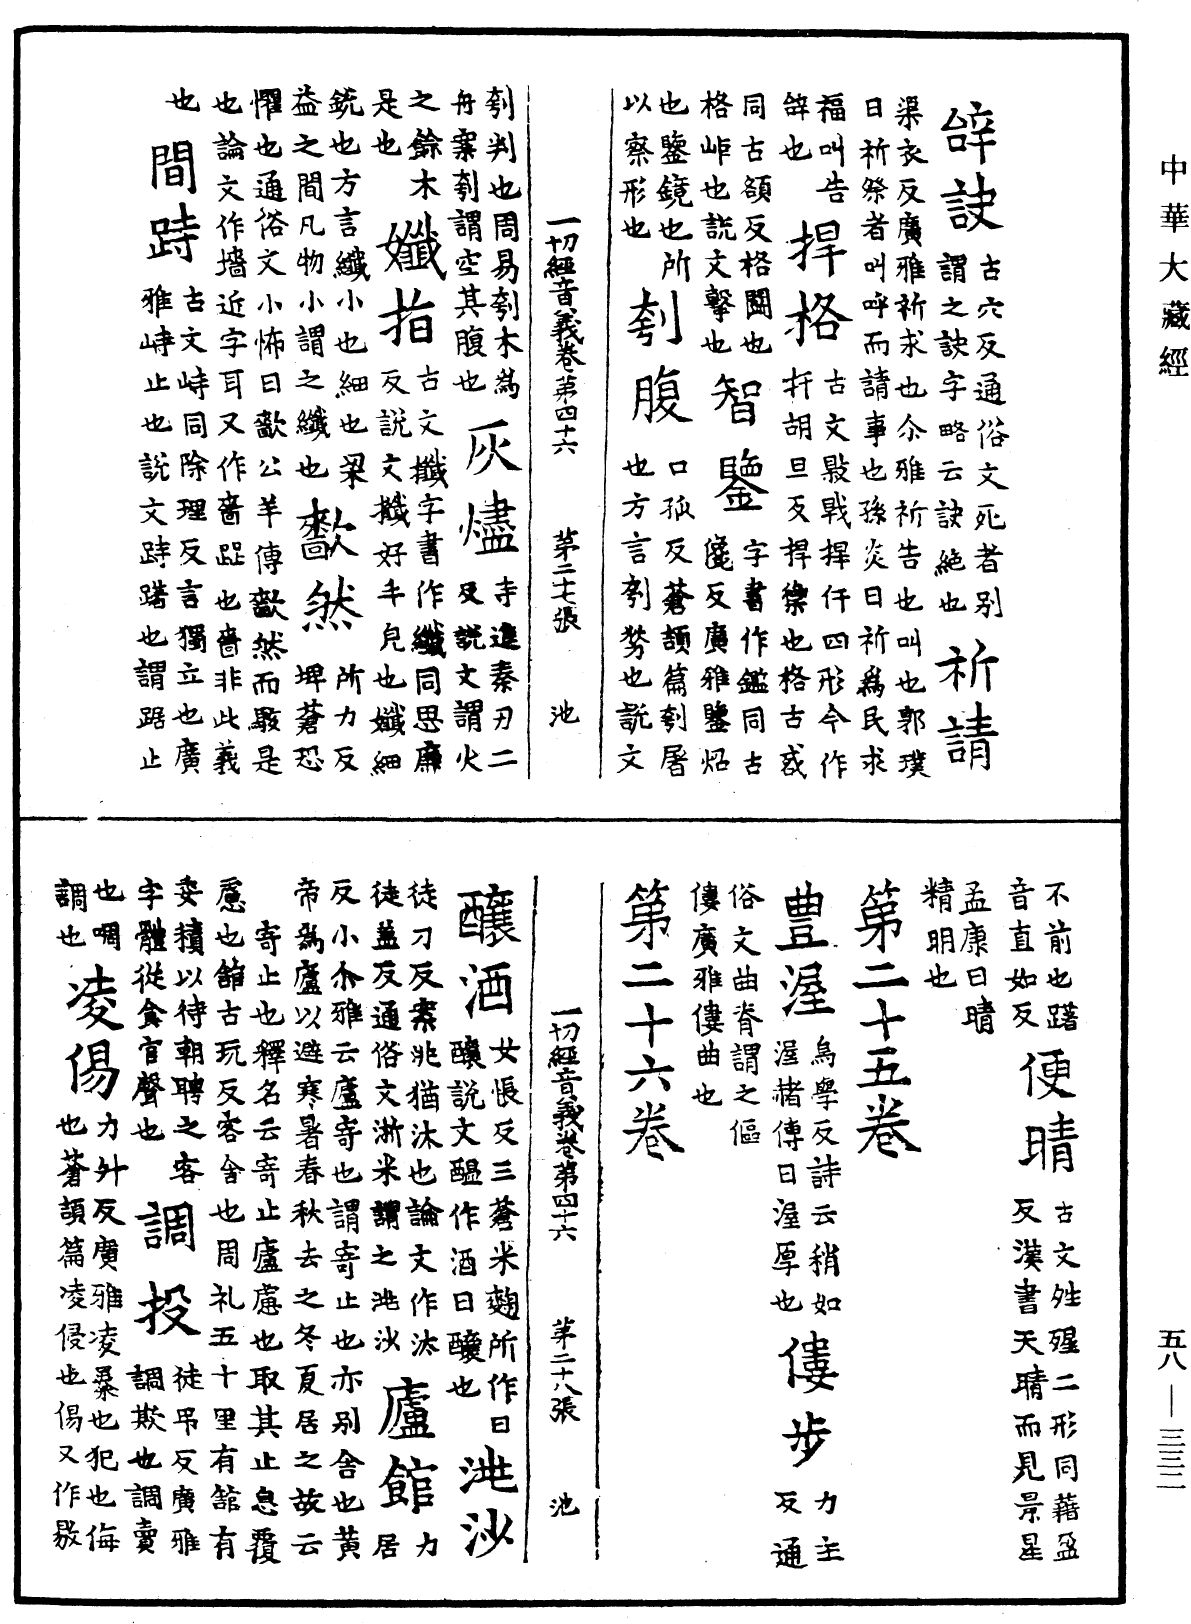 中華大藏經
辞訣 古穴反通俗文死者別
謂之訣字略云訣絕也 祈請
渠衣反廣雅祈求也尒雅祈告也叫也郭璞
曰祈祭者叫呼而請事也孫炎曰祈為民求
福叫告
辞也 捍格 古文㪋戰捍仠四形今作
扞胡旦反捍禦也格古或
同古頟反格鬪也
格㟧也說文擊也 智鑒 字書作鑑同古
儳反廣雅鑒炤
也鑒鏡也所
以察形也 刳腹 口孤反蒼頡篇刳屠
也方言刳㔟也說文
一切經音義卷第四十六 第二十七張 池
刳判也周易刳木為
舟案刳謂空其腹也 灰燼 寺進秦刃二
反說文謂火
之餘木
是也 孅指 古文攕字書作纖同思廉
反說文攕好手皃也孅細
銳也方言纖小也細也梁
益之間凡物小謂之纖也 歮然 所力反
埤蒼恐
懼也通俗文小怖曰歮公羊傳歮然而駭是
也論文作墻近字耳又作嗇䟽也嗇非此義
也 間跱 古文峙同除理反言獨立也廣
雅峙止也說文跱躇也謂踞止
不前也躇
音直如反 便晴 古文夝暒二形同藉盈
反漢書天晴而見景星
孟康曰晴
精明也
第二十五卷
豊渥 烏學反詩云稍如
渥赭傳曰渥厚也 僂步 力主
反通
俗文曲脊謂之傴
僂廣雅僂曲也
第二十六卷
一切經音義卷第四十六 第二十八張 池
釀酒 女悵反三蒼米麴所作曰
釀說文醖作酒曰釀也 沘沙
徒刀反案沘猶汰也論文作汰
徒蓋反通俗文淅米謂之沘沙 廬館 力
居
反小尒雅云廬寄也謂寄止也亦別舍也黃
帝為廬以避寒暑春秋去之冬夏居之故云
寄止也釋名云寄止廬慮也取其止息覆
慮也館古玩反客舍也周礼五十里有館有
委積以待朝聘之客
字體從食官聲也 調投 徒弔反廣雅
調欺也調賣
也啁
調也 凌傷 力外反廣雅凌暴也犯也侮
也蒼頡篇凌侵也傷又作敭
五八—三三二